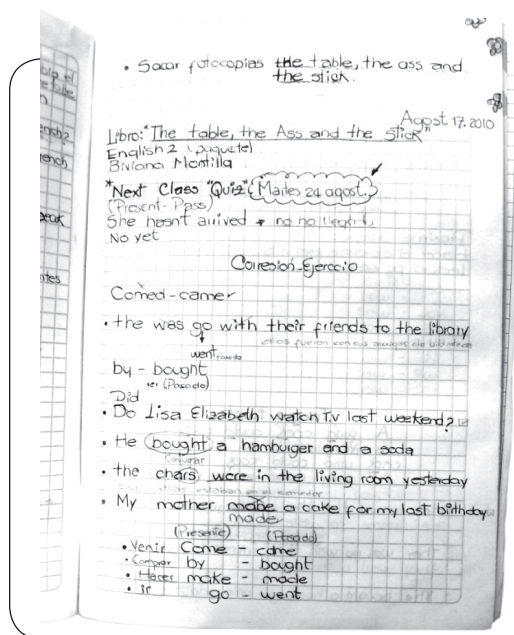 • Sacar fotocopias the table, the ass and
the stick.
Agost 17.2010
Libro: "The table, the Ass and the Stick"
English 2 (paquete)
Biviana Montilla
*Next Class "Quiz" (Martes 24 agost.)
(Present-Pass)
She hasn't arrived → no ha llegado
No yet
Corresión-Ejercicio
Comed-camer
• the was go with their friends to the library
went pasado
ellos fueron con sus amigos a la biblioteca
by - bought
(Pasado)
Did
• Do Lisa Elizabeth watch T.v last weekend?
• He bought a hamburger and a soda
Comprar
• the chars were in the living room yesterday
estaban en el comedor
• My mother mabe a cake for my last birthday
made
(Presente) (Pasado)
• Venir Come - came
• Comprar by - bought
• Hacer make - made
• ir go - went